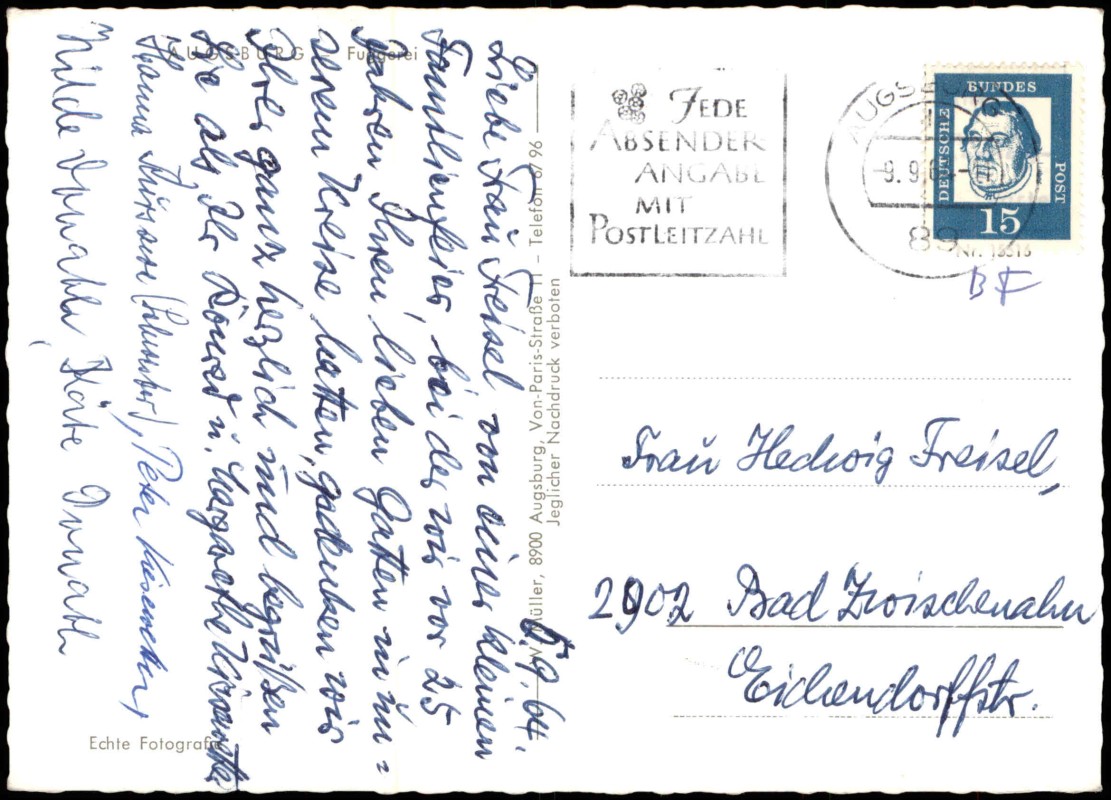 AUGSBURG – Fuggerei
8.9.64.
Liebe Frau Freisel, von einer kleinen
Familienfeier, bei der wir vor 25
Jahren Ihren lieben Gatten in un=
serem Kreise hatten, gedenken wir
Ihrer ganz herzlich und begrüßen
Sie als Ihr Konrad u. Margarethe
Hanna (Schuster), Peter
Hilde Donath, Käte Donath
Echte Fotografie
Müller, 8900 Augsburg, Von-Paris-Straße 11 – Telefon 6/96
Jeglicher Nachdruck verboten
JEDE
ABSENDER
ANGABE
MIT
POSTLEITZAHL
AUGSBURG
-9.9.6
89
DEUTSCHE
BUNDES
POST
15
Nr. 15516
BF
Frau Hedwig Freisel,
2902 Bad Zwischenahn
Eichendorffstr.